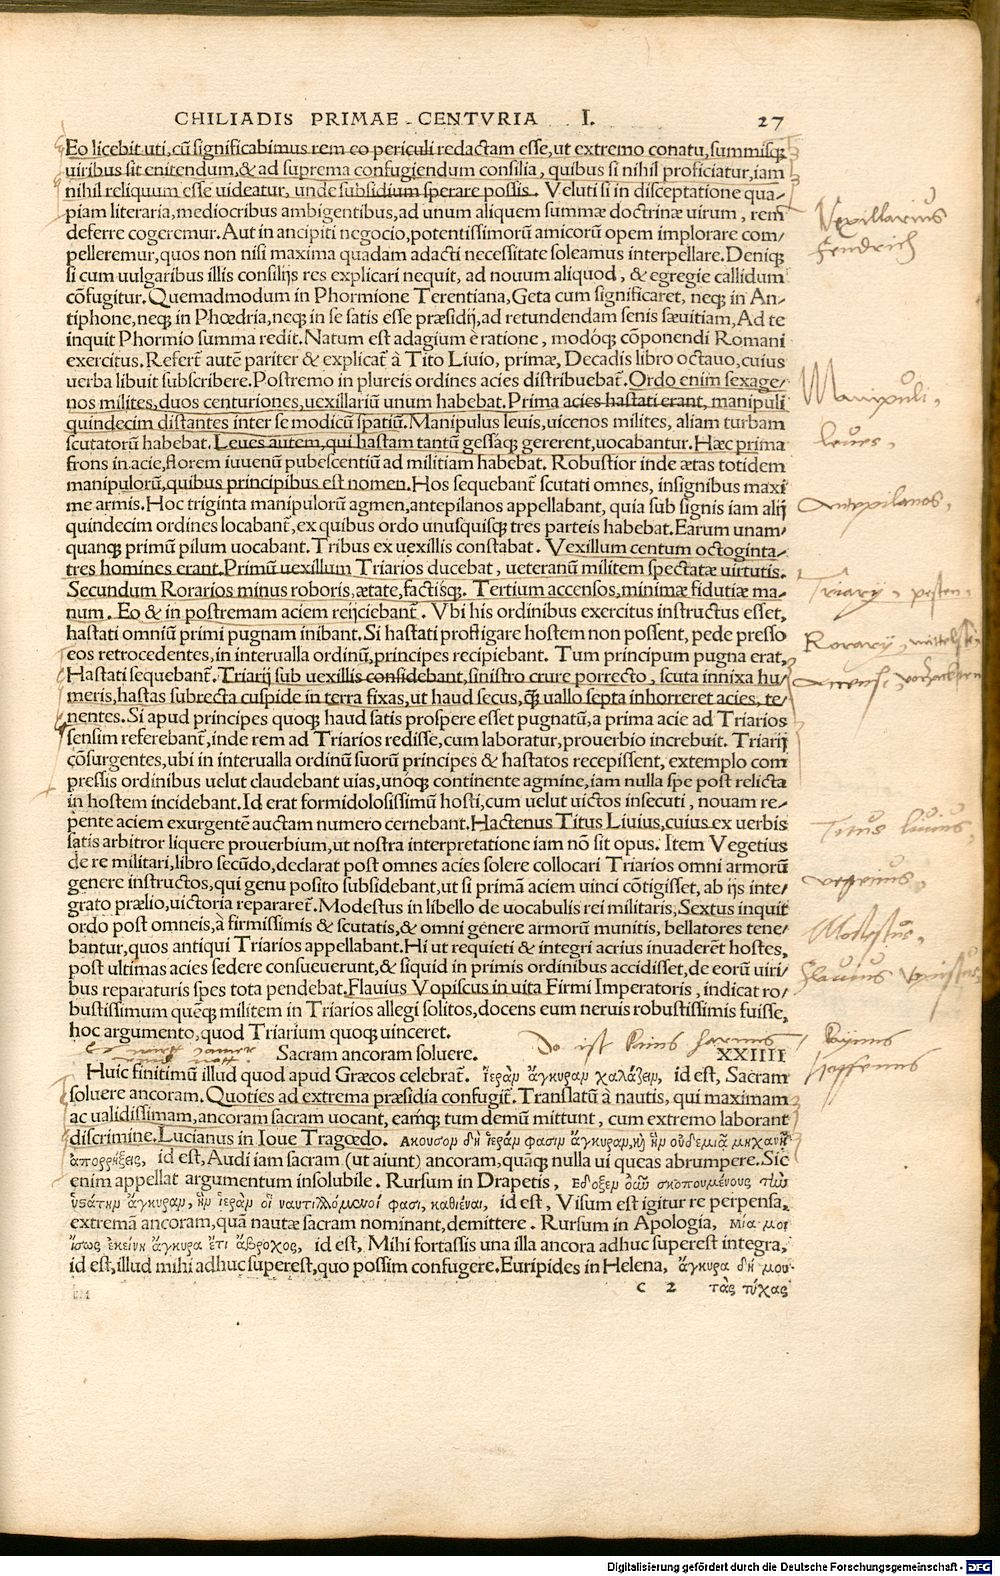 CHILIADIS PRIMAE CENTVRIA I. 27
Eo licebit uti, cū significabimus rem eo periculi redactam esse, ut extremo conatu, summisq́;
uiribus sit enitendum, & ad suprema confugiendum consilia, quibus si nihil proficiatur, iam
nihil reliquum esse uideatur, unde subsidium sperare possis. Veluti si in disceptatione qua-
piam literaria, mediocribus ambigentibus, ad unum aliquem summæ doctrinæ uirum, rem
deferre cogeremur. Aut in ancipiti negocio, potentissimorū amicorū opem implorare com-
pelleremur, quos non nisi maxima quadam adacti necessitate soleamus interpellare. Deniq;
si cum uulgaribus illis consilijs res explicari nequit, ad nouum aliquod, & egregie callidum
cōfugitur. Quemadmodum in Phormione Terentiana, Geta cum significaret, neq; in An-
tiphone, neq; in Phœdria, neq; in se satis esse præsidij, ad retundendam senis sæuitiam, Ad te
inquit Phormio summa redit. Natum est adagium è ratione, modóq; cōponendi Romani
exercitus. Refert̃ autē pariter & explicat̃ à Tito Liuio, primæ, Decadis libro octauo, cuius
uerba libuit subscribere. Postremo in plureis ordines acies distribuebat̃. Ordo enim sexage-
nos milites, duos centuriones, uexillariū unum habebat. Prima acies hastati erant, manipuli
quindecim distantes inter se modicū spatiū. Manipulus leuis, uicenos milites, aliam turbam
scutatorū habebat. Leues autem, qui hastam tantū gessaq́; gererent, uocabantur. Hæc prima
frons in acie, florem iuuenū pubescentiū ad militiam habebat. Robustior inde ætas totidem
manipulorū, quibus principibus est nomen. Hos sequebant̃ scutati omnes, insignibus maxi
me armis. Hoc triginta manipulorū agmen, antepilanos appellabant, quia sub signis iam alij
quindecim ordines locabant̃, ex quibus ordo unusquisq; tres parteis habebat. Earum unam-
quanq; primū pilum uocabant. Tribus ex uexillis constabat. Vexillum centum octoginta-
tres homines erant. Primū uexillum Triarios ducebat, ueteranū militem spectatæ uirtutis.
Secundum Rorarios minus roboris, ætate, factisq́;. Tertium accensos, minimæ fidutiæ ma-
num. Eo & in postremam aciem reijciebant̃. Vbi his ordinibus exercitus instructus esset,
hastati omniū primi pugnam inibant. Si hastati profligare hostem non possent, pede presso
eos retrocedentes, in interualla ordinū, principes recipiebant. Tum principum pugna erat,
Hastati sequebant̃. Triarij sub uexillis considebant, sinistro crure porrecto, scuta innixa hu-
meris, hastas subrecta cuspide in terra fixas, ut haud secus, q̃ uallo septa inhorreret acies, te-
nentes. Si apud principes quoq; haud satis prospere esset pugnatū, a prima acie ad Triarios
sensim referebant̃, inde rem ad Triarios redisse, cum laboratur, prouerbio increbuit. Triarij
cōsurgentes, ubi in interualla ordinū suorū principes & hastatos recepissent, extemplo com
pressis ordinibus uelut claudebant uias, unóq; continente agmine, iam nulla spe post relicta
in hostem incidebant. Id erat formidolosissimū hosti, cum uelut uictos insecuti, nouam re-
pente aciem exurgentē auctam numero cernebant. Hactenus Titus Liuius, cuius ex uerbis
satis arbitror liquere prouerbium, ut nostra interpretatione iam nō sit opus. Item Vegetius
de re militari, libro secūdo, declarat post omnes acies solere collocari Triarios omni armorū
genere instructos, qui genu posito subsidebant, ut si primā aciem uinci cōtigisset, ab ijs inte-
grato prælio, uictoria repararet̃. Modestus in libello de uocabulis rei militaris, Sextus inquit
ordo post omneis, à firmissimis & scutatis, & omni genere armorū munitis, bellatores tene-
bantur, quos antiqui Triarios appellabant. Hi ut requieti & integri acrius inuaderēt hostes,
post ultimas acies sedere consueuerunt, & siquid in primis ordinibus accidisset, de eorū uiri-
bus reparaturis spes tota pendebat. Flauius Vopiscus in uita Firmi Imperatoris, indicat ro-
bustissimum quēq; militem in Triarios allegi solitos, docens eum neruis robustissimis fuisse,
hoc argumento, quod Triarium quoq; uinceret.
Sacram ancoram soluere. XXIIII
Huic finitimū illud quod apud Græcos celebrat̃. ἱερὰν ἄγκυραν χαλάζειν, id est, Sacram
soluere ancoram. Quoties ad extrema præsidia confugit̃. Translatū à nautis, qui maximam
ac validissimam, ancoram sacram uocant, eamq́; tum demū mittunt, cum extremo laborant
discrimine. Lucianus in Ioue Tragœdo. Ακουσον δὴ ἱερὰν φασιν ἄγκυραν, καὶ ἣν οὐδεμιᾷ μηχανῇ
ἀπορρήξεις, id est, Audi iam sacram (ut aiunt) ancoram, quāq; nulla ui queas abrumpere. Sic
enim appellat argumentum insolubile. Rursum in Drapetis, Εδοξεν οὖν σκοπουμένους τὴν
ὑστάτην ἄγκυραν, ἣν ἱερὰν οἱ ναυτιλλόμενοί φασι, καθιέναι, id est, Visum est igitur re perpensa,
extremā ancoram, quā nautæ sacram nominant, demittere. Rursum in Apologia, Μία μοι
ἴσως ἐκείνη ἄγκυρα ἔτι ἄβροχος, id est, Mihi fortassis una illa ancora adhuc superest integra,
id est, illud mihi adhuc superest, quo possim confugere. Euripides in Helena, ἄγκυρα δή μου
c 2 τὰς τύχας
Vexillarius
fendrich
Manipuli.
leues.
Antepilanos.
Triarij
Rorarij
Titus liuius.
Modestus.
Flauius Vopiscus
Do ist kains
Digitalisierung gefördert durch die Deutsche Forschungsgemeinschaft - DFG